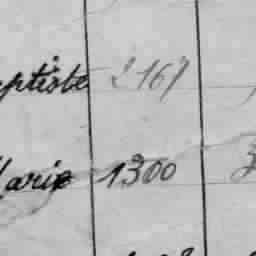 aptiste 2167
Marie 1300